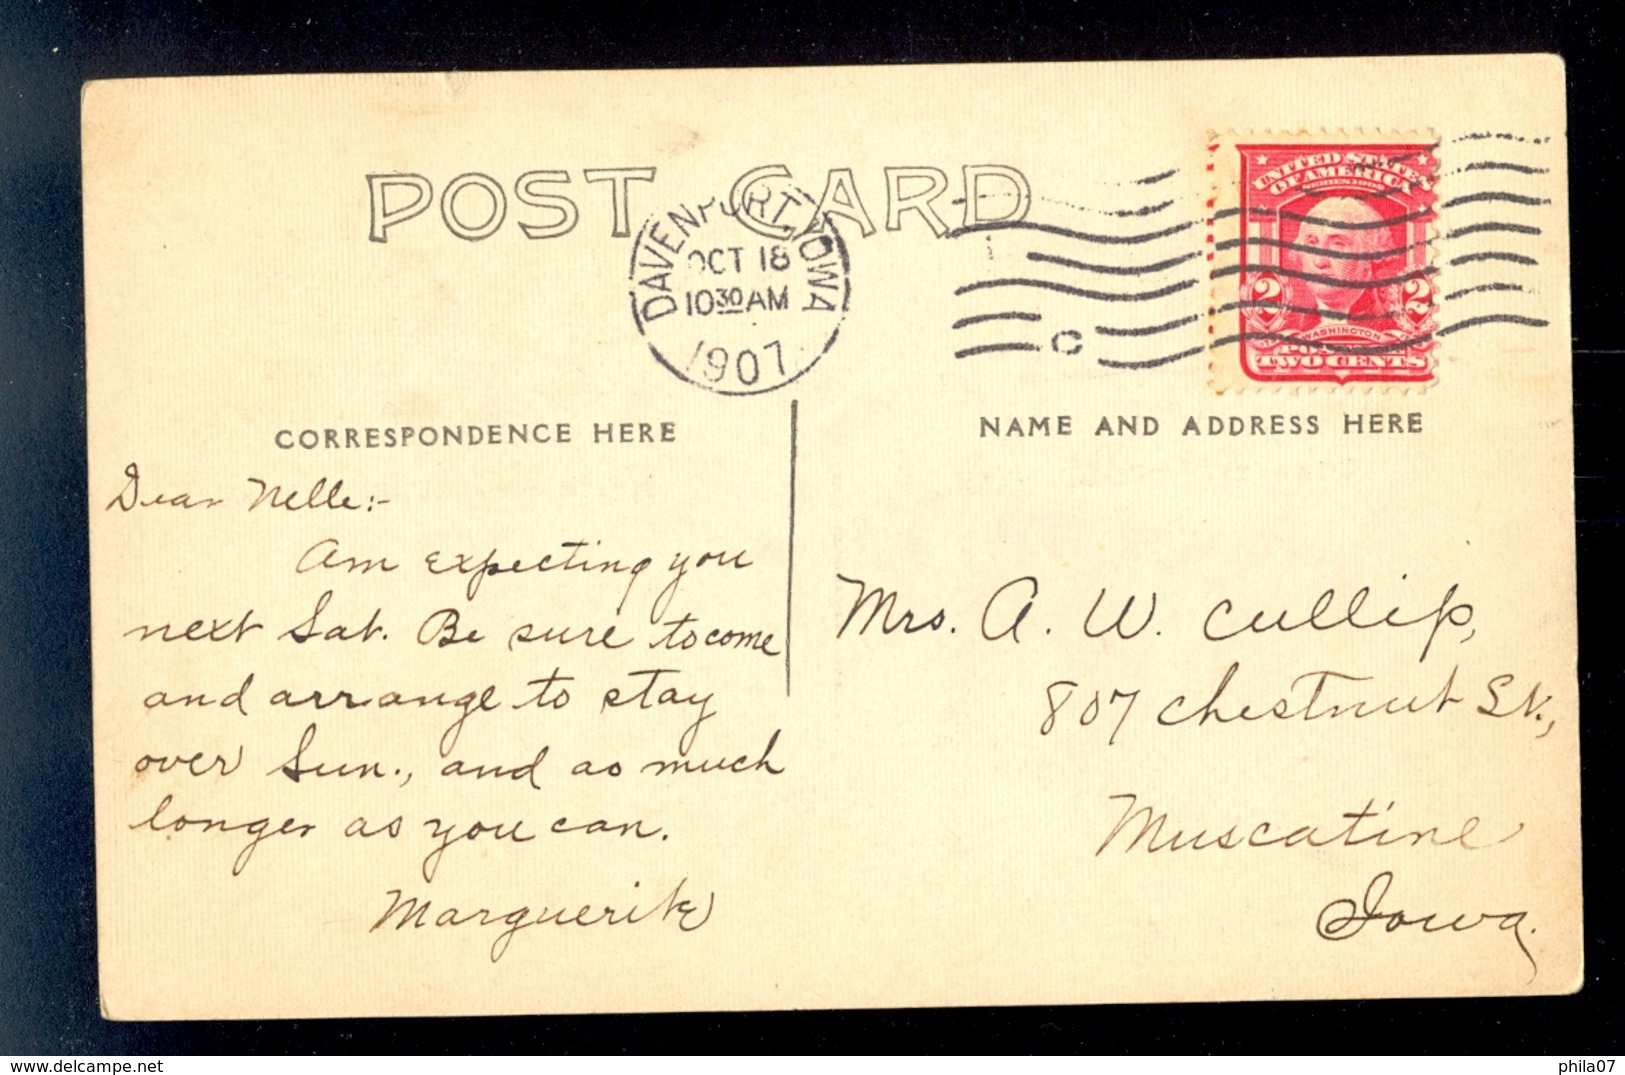 POST CARD
DAVENPORT, IOWA
OCT 18
10 30 AM
1907
C
UNITED STATES
OF AMERICA
SERIES 1902
2 2
WASHINGTON
POSTAGE
TWO CENTS
CORRESPONDENCE HERE
NAME AND ADDRESS HERE
Dear Nelle:-
Am expecting you
next Sat. Be sure to come
and arrange to stay
over Sun., and as much
longer as you can.
Marguerite
Mrs. A. W. Cullip,
807 Chestnut St.,
Muscatine
Iowa.
phila07